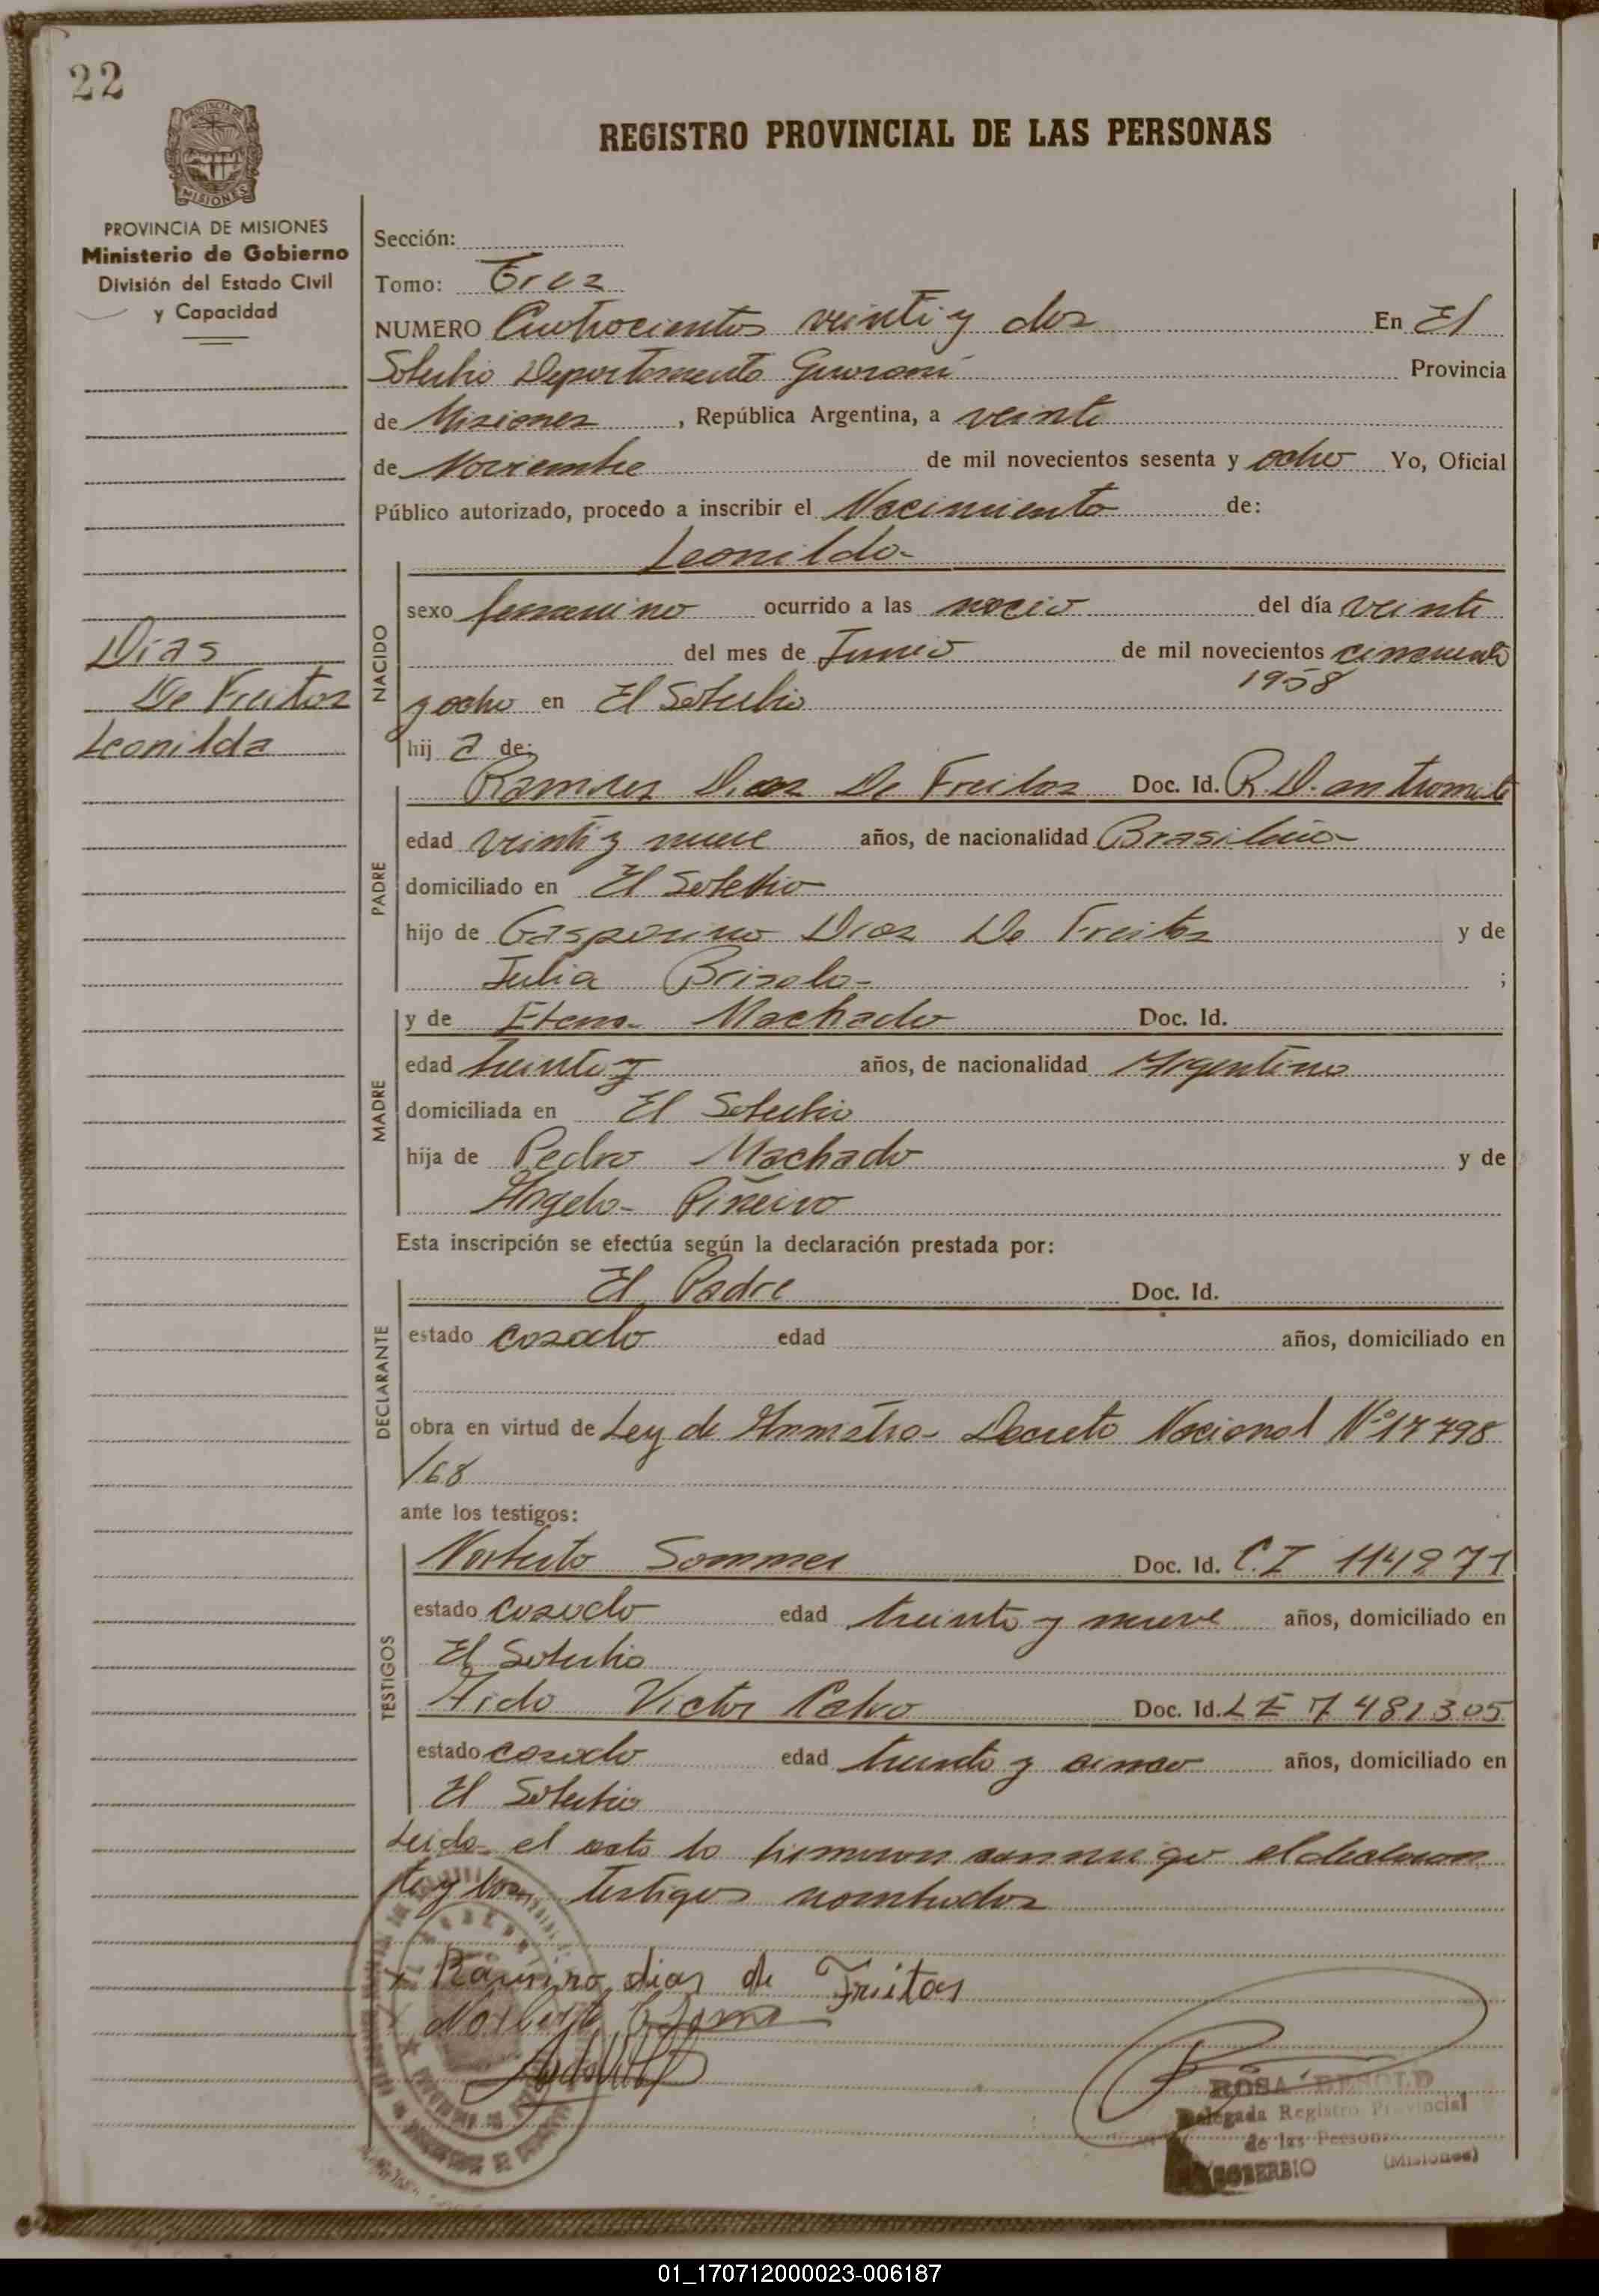 22
PROVINCIA DE MISIONES
MISIONES
PROVINCIA DE MISIONES
Ministerio de Gobierno
División del Estado Civil
y Capacidad
Dias
De Freitas
Leonilda
REGISTRO PROVINCIAL DE LAS PERSONAS
Sección:
Tomo: Tres
NUMERO Cuatrocientos veinti y dos En El
Soberbio Departamento Guarani Provincia
de Misiones, República Argentina, a veinte
de Noviembre de mil novecientos sesenta y ocho Yo, Oficial
Público autorizado, procedo a inscribir el Nacimiento de:
Leonilda-
NACIDO
sexo femenino ocurrido a las del día veinte
del mes de Junio de mil novecientos cincuenta
1958
y ocho en El Soberbio
hij a de:
PADRE
Dias De Freitas Doc. Id. R.D. en tramite
edad veinti y nueve años, de nacionalidad Brasileño-
domiciliado en El Soberbio
hijo de Gasparino Dias De Freitas y de
Julia Brizola- ;
MADRE
y de Machado Doc. Id.
edad treinta y años, de nacionalidad Argentina
domiciliada en El Soberbio
hija de Pedro Machado y de
Angela- Piñeiro
Esta inscripción se efectúa según la declaración prestada por:
DECLARANTE
El Padre Doc. Id.
estado casado edad años, domiciliado en
obra en virtud de Ley de Amnistia- Decreto Nacional Nº 17798
/68
ante los testigos:
TESTIGOS
Norberto Sommer Doc. Id. C.I 114971
estado casado edad treinta y nueve años, domiciliado en
El Soberbio
Victor Calvo Doc. Id. LE 7481305
estado casado edad treinta y cinco años, domiciliado en
El Soberbio
Leida el acta la firmaron conmigo el declaran
te y los testigos nombrados
X Ramiro dias de Freitas
Norberto
ROSA BENOLD
Delegada Registro Provincial
de las Personas
SOBERBIO (Misiones)
01_170712000023-006187